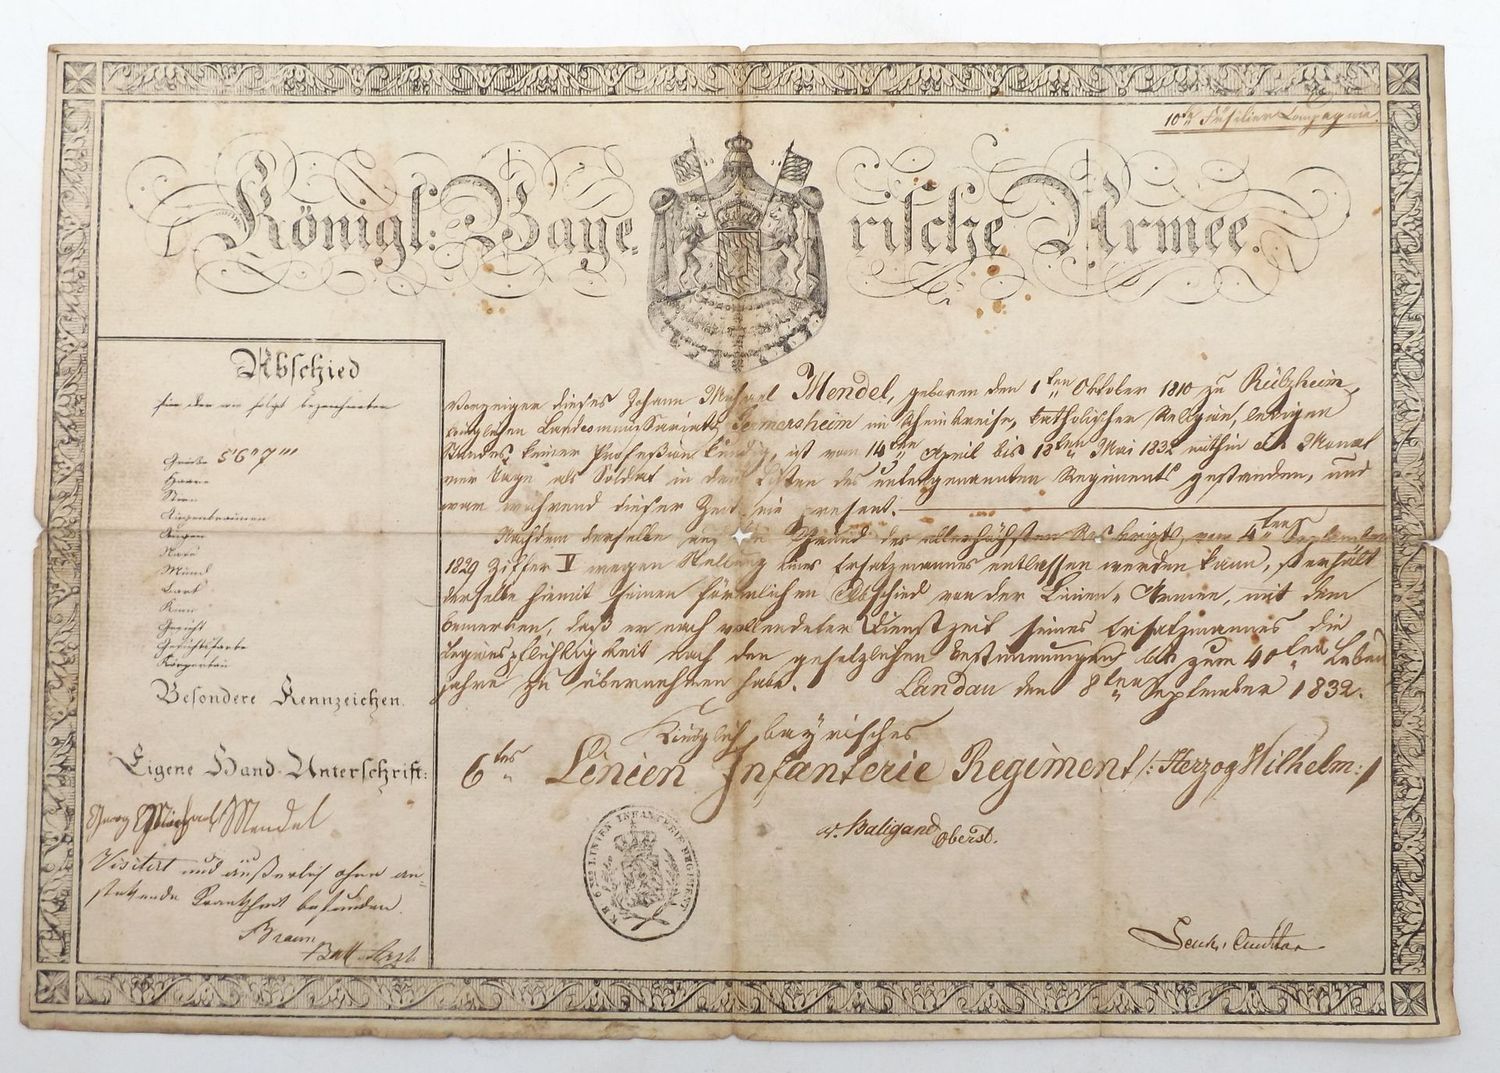 10te Füsilier Compagnie.
Königl: Baye- rische Armee.
Abschied
für den wie folgt bezeichneten
Größe 5'6"7'''
Haare
Stirn
Augenbraunen
Augen
Nase
Mund
Bart
Kinn
Gesicht
Gesichtsfarbe
Körperbau
Besondere Kennzeichen.
Eigene Hand-Unterschrift:
Georg Michael Mendel
Visitirt und äußerlich ohne an-
steckende Krankheit befunden.
Braun
Batt. Arzt
Vorzeiger dieses Johann Michael Mendel, geboren den 1ten Oktober 1810 zu Rülzheim,
königlichen Landcommissariats Germersheim im Rheinkreise, katholischer Religion, ledigen
Standes, keiner Profeßion kündig, ist vom 14ten April bis 18ten Mai 1832 mithin ein Monat
vier Tage als Soldat in den Listen des untergenannten Regiments gestanden, und
war während dieser Zeit nie present.
Nachdem derselbe auf den Grund des allerhöchsten Reskripts vom 4ten September
1829 Ziffer V wegen Stellung eines Ersatzmannes entlassen werden kann, so erhält
derselbe hiemit seinen förmlichen Abschied von der Linien-Armee, mit dem
bemerken, daß er nach vollendeter Dienstzeit seines Ersatzmannes die
Legionspflichtigkeit nach den gesetzlichen Bestimmungen bis zum 40ten Lebens
jahre zu übernehmen habe. Landau den 8ten September 1832.
Königlich bayrisches
6tes Linien Infanterie Regiment /: Herzog Wilhelm :/
v. Baligand Oberst.
K B 6TES LINIEN INFANTERIE REGIMENT